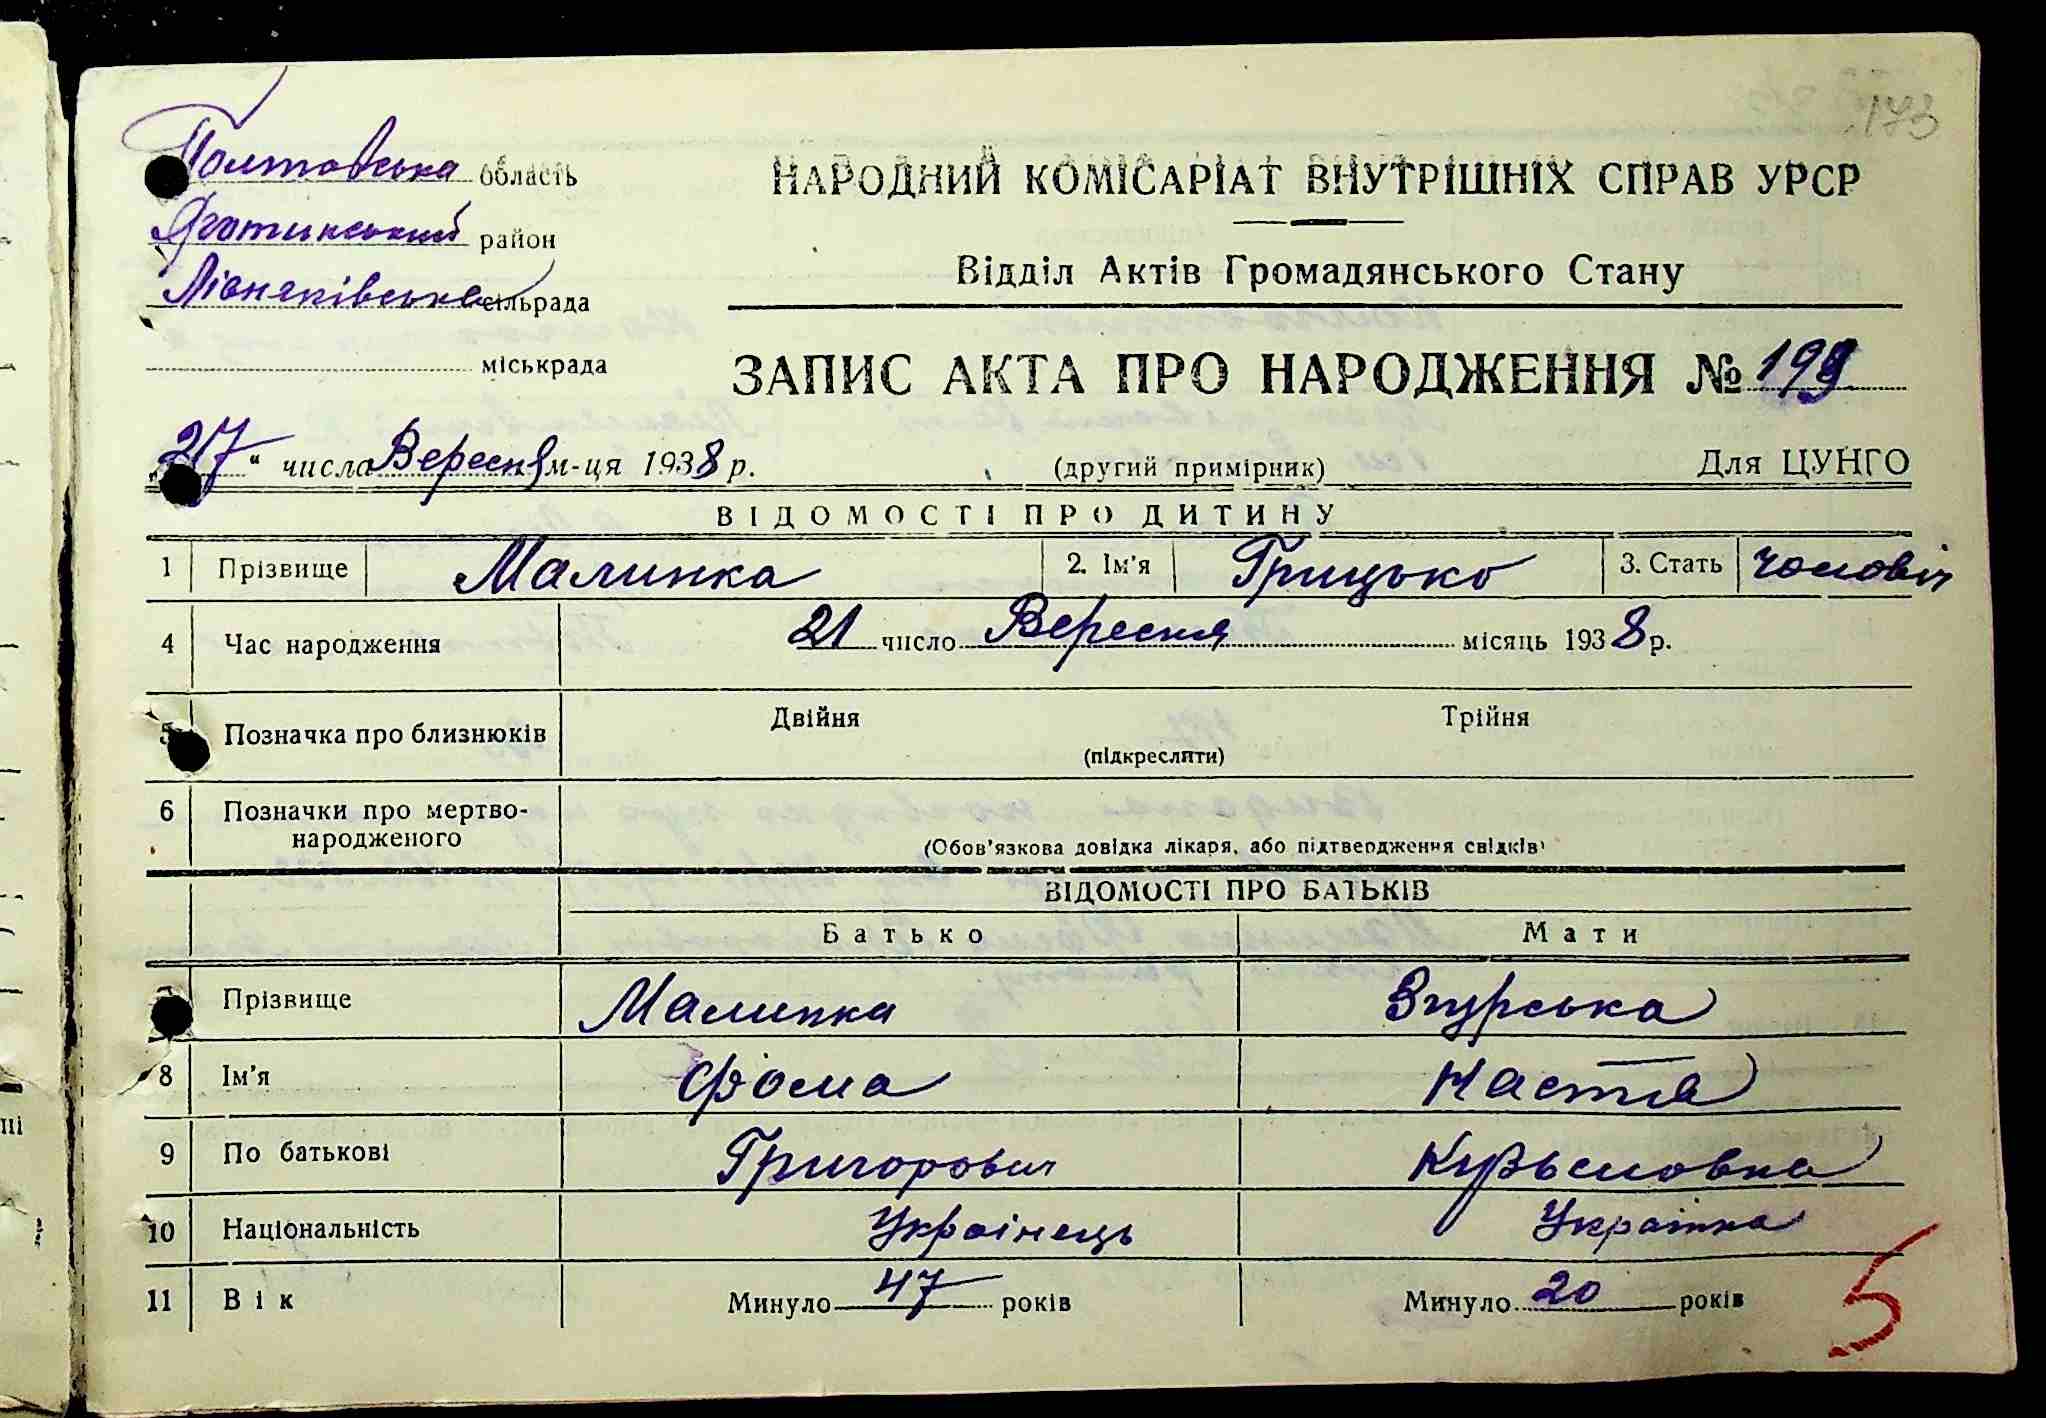 173
Полтовська область
Яготинський район
Лівняківська сільрада
міськрада
НАРОДНИЙ КОМІСАРІАТ ВНУТРІШНІХ СПРАВ УРСР
Відділ Актів Громадянського Стану
ЗАПИС АКТА ПРО НАРОДЖЕННЯ № 199
„27“ числа Вересня м-ця 1938 р. (другий примірник) Для ЦУНГО
ВІДОМОСТІ ПРО ДИТИНУ
1 Прізвище Малинка 2. Ім'я Грицько 3. Стать чоловіч
4 Час народження 21 число Вересня місяць 1938 р.
5 Позначка про близнюків Двійня Трійня
(підкреслити)
6 Позначки про мертво-
народженого
(Обов'язкова довідка лікаря, або підтвердження свідків)
ВІДОМОСТІ ПРО БАТЬКІВ
Батько Мати
Прізвище Малинка Згурська
8 Ім'я Фома Настя
9 По батькові Григорович Кузьмовна
10 Національність Украінець Украінка
11 Вік Минуло 47 років Минуло 20 років
5